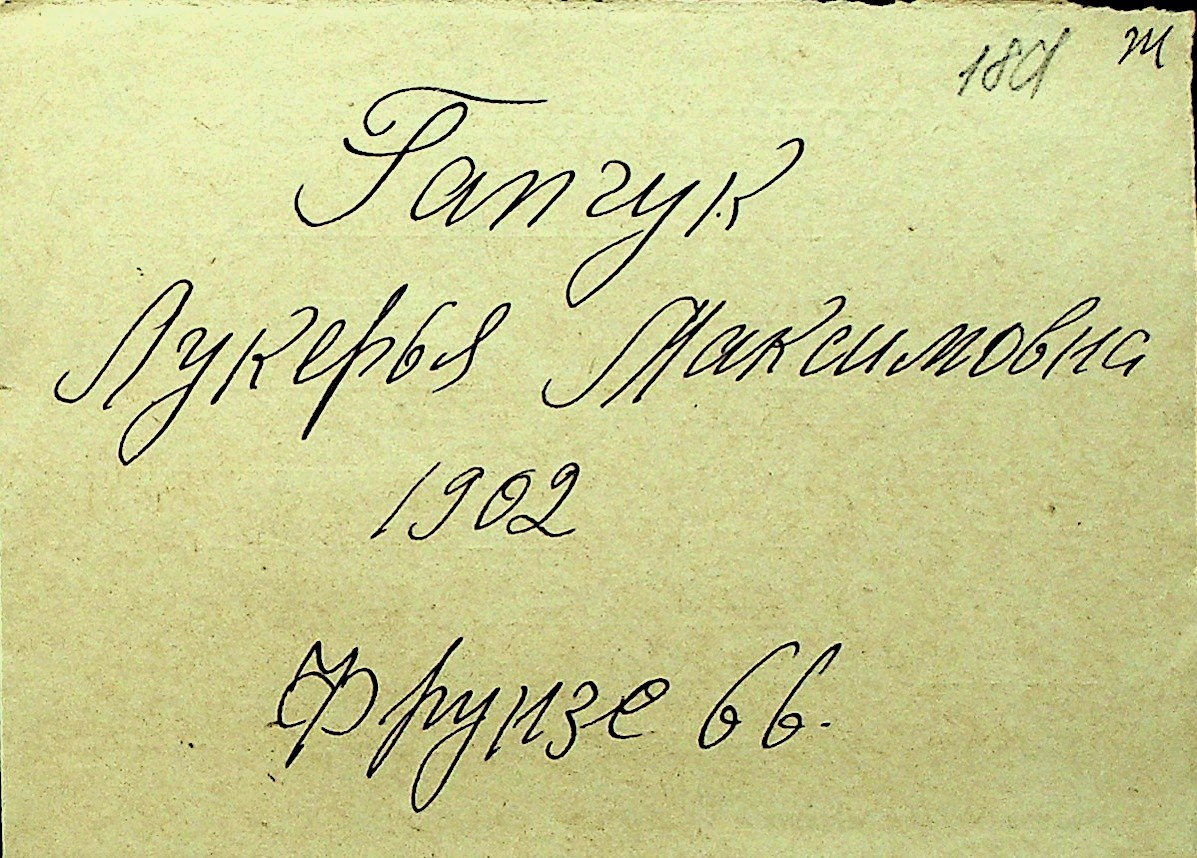 Гапчук
Лукерья Максимовна
1902
Фрунзе 66.